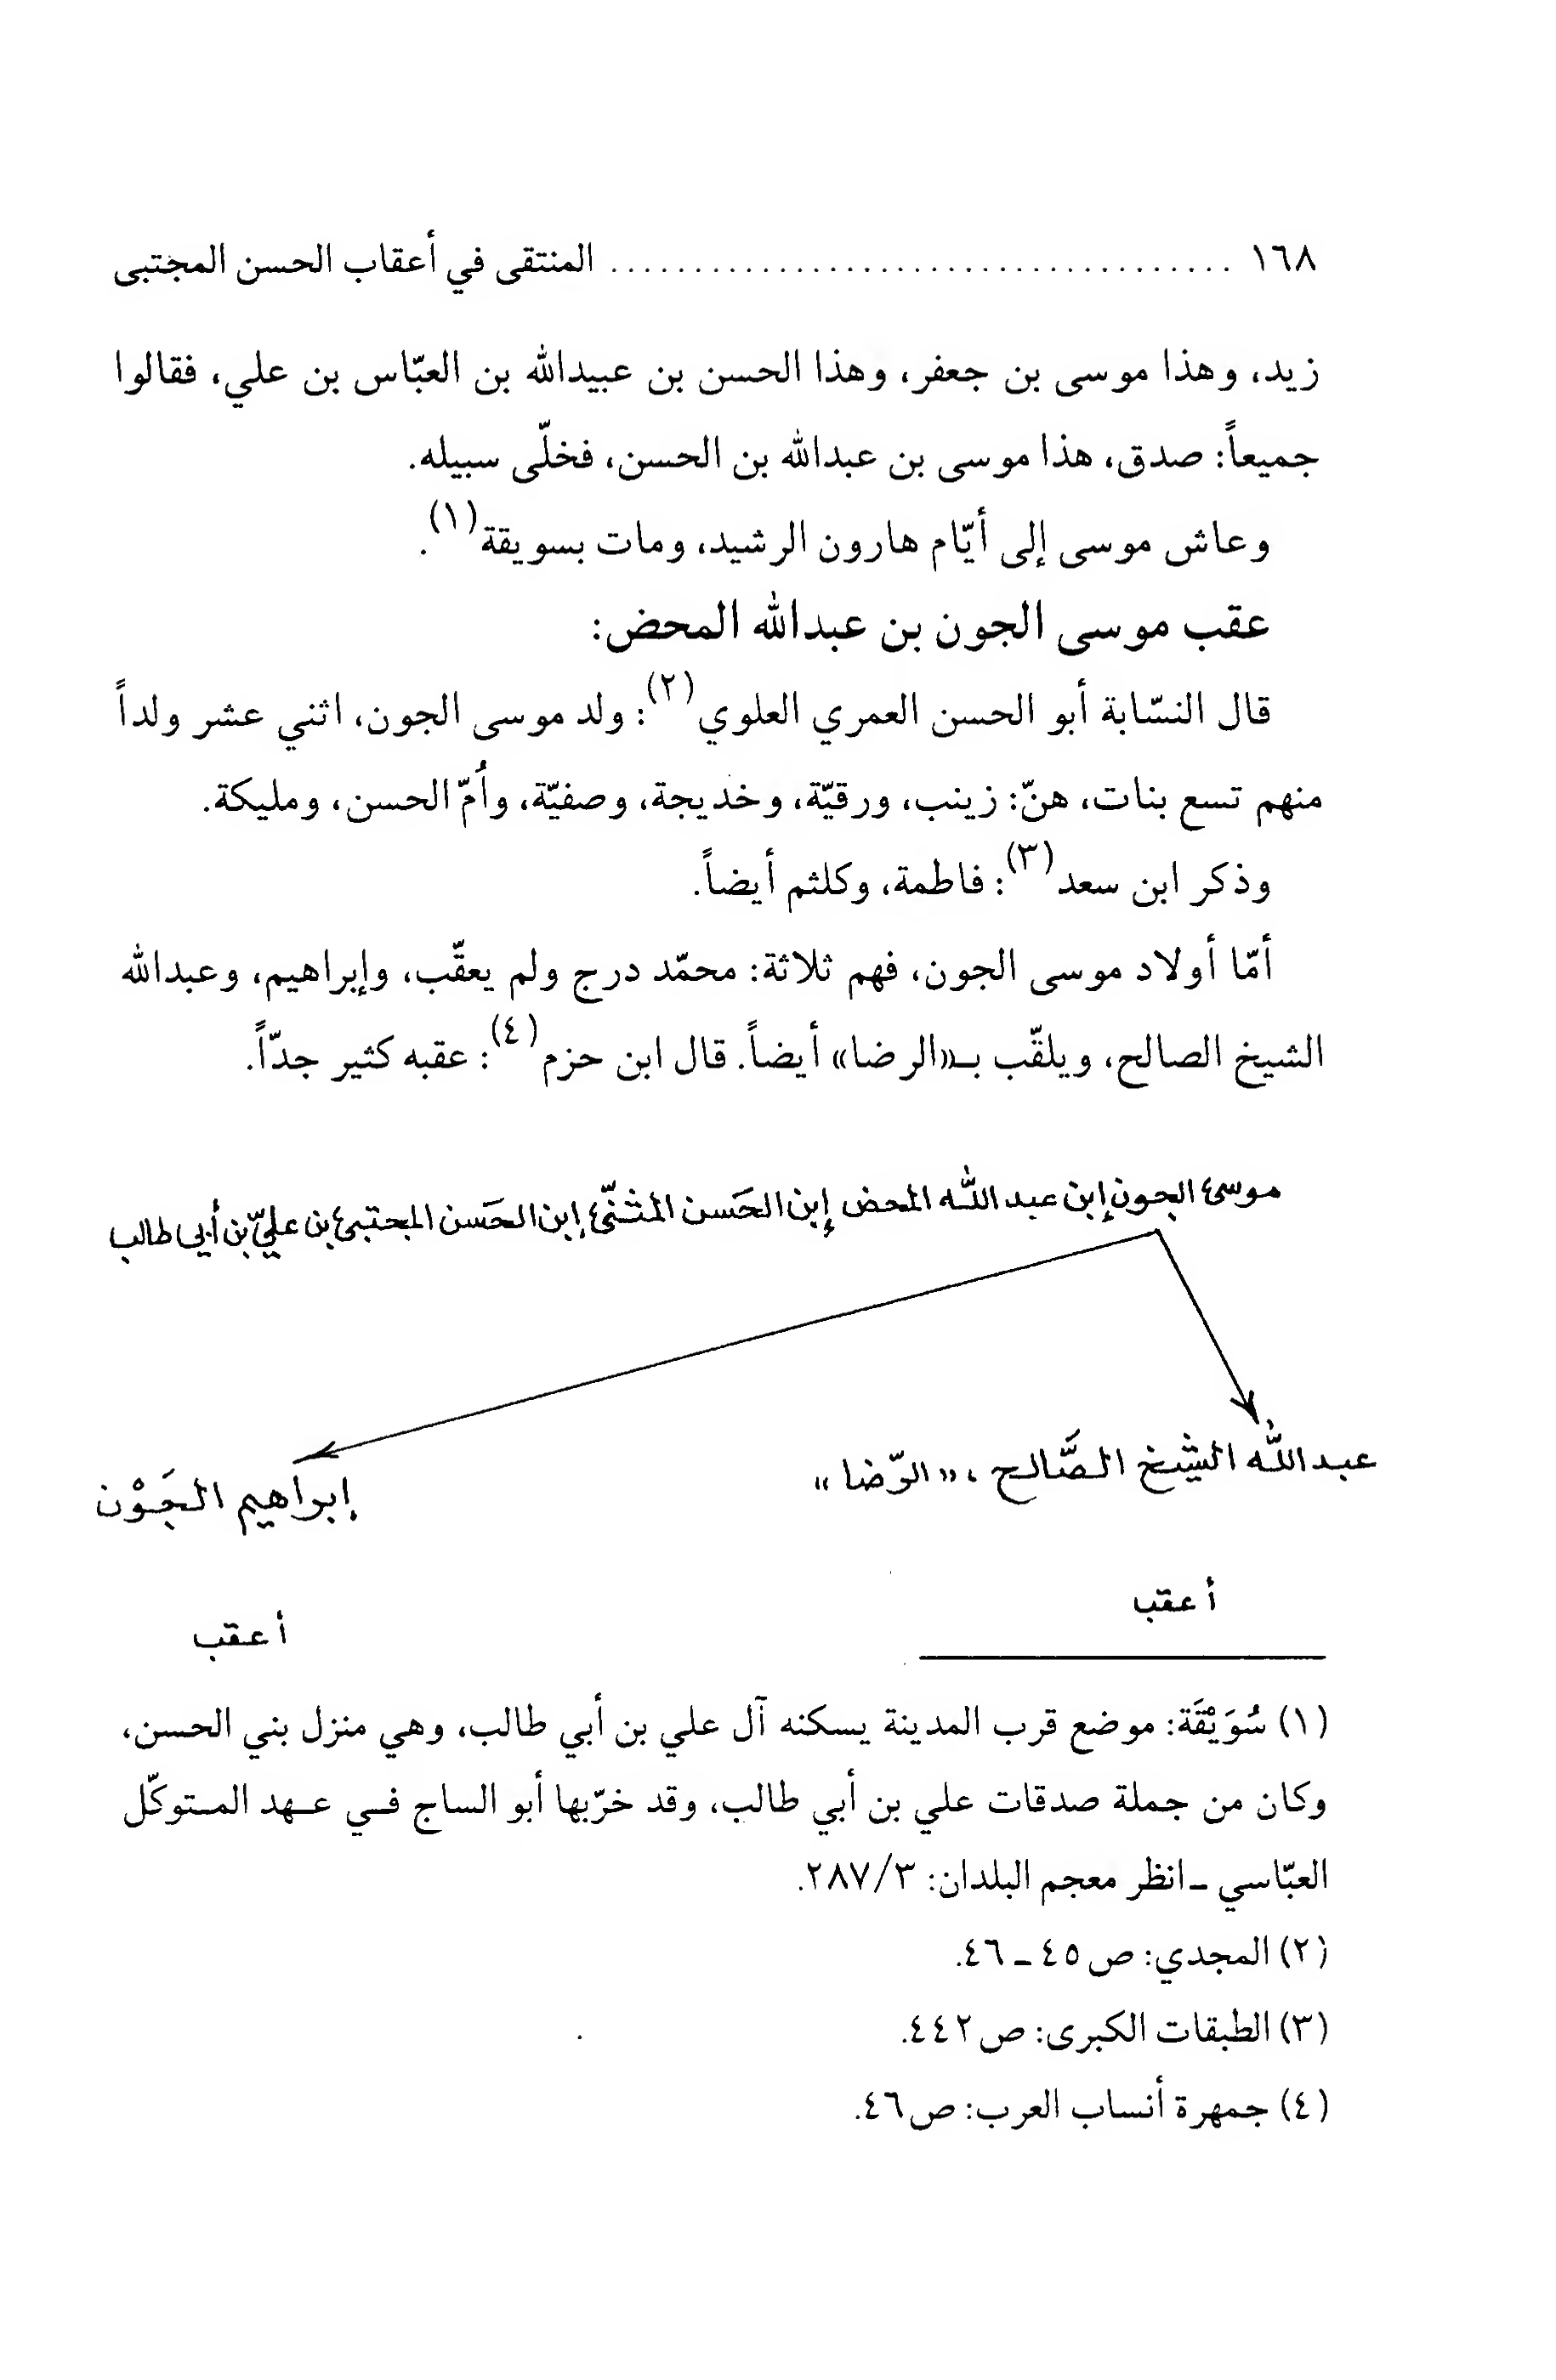 ١٦٨ ..................................... المنتقى في أعقاب الحسن المجتبى
زيد، وهذا موسى بن جعفر، وهذا الحسن بن عبيدالله بن العبّاس بن علي، فقالوا
جميعاً: صدق، هذا موسى بن عبدالله بن الحسن، فخلّى سبيله.
وعاش موسى إلى أيّام هارون الرشيد، ومات بسويقة(١).
عقب موسى الجون بن عبدالله المحض:
قال النسّابة أبو الحسن العمري العلوي(٢): ولد موسى الجون، اثني عشر ولداً
منهم تسع بنات، هنّ: زينب، ورقيّة، وخديجة، وصفيّة، وأُمّ الحسن، ومليكة.
وذكر ابن سعد(٣): فاطمة، وكلثم أيضاً.
أمّا أولاد موسى الجون، فهم ثلاثة: محمّد درج ولم يعقّب، وإبراهيم، وعبدالله
الشيخ الصالح، ويلقّب بـ«الرضا» أيضاً. قال ابن حزم(٤): عقبه كثير جدّاً.
موسى الجون إبن عبد الله المحض إبن الحَسن المثنّى إبن الحَسن المجتبى بن عليّ بن أبي طالب
عبد الله الشيخ الصَّالح ، «الرّضا»
إبراهيم الجَوْن
أعقب
أعقب
(١) سُوَيْقَة: موضع قرب المدينة يسكنه آل علي بن أبي طالب، وهي منزل بني الحسن،
وكان من جملة صدقات علي بن أبي طالب، وقد خرّبها أبو الساج فـي عـهد المـتوكّل
العبّاسي ـ انظر معجم البلدان: ٢٨٧/٣.
(٢) المجدي: ص ٤٥ ـ ٤٦.
(٣) الطبقات الكبرى: ص ٤٤٢.
(٤) جمهرة أنساب العرب: ص ٤٦.